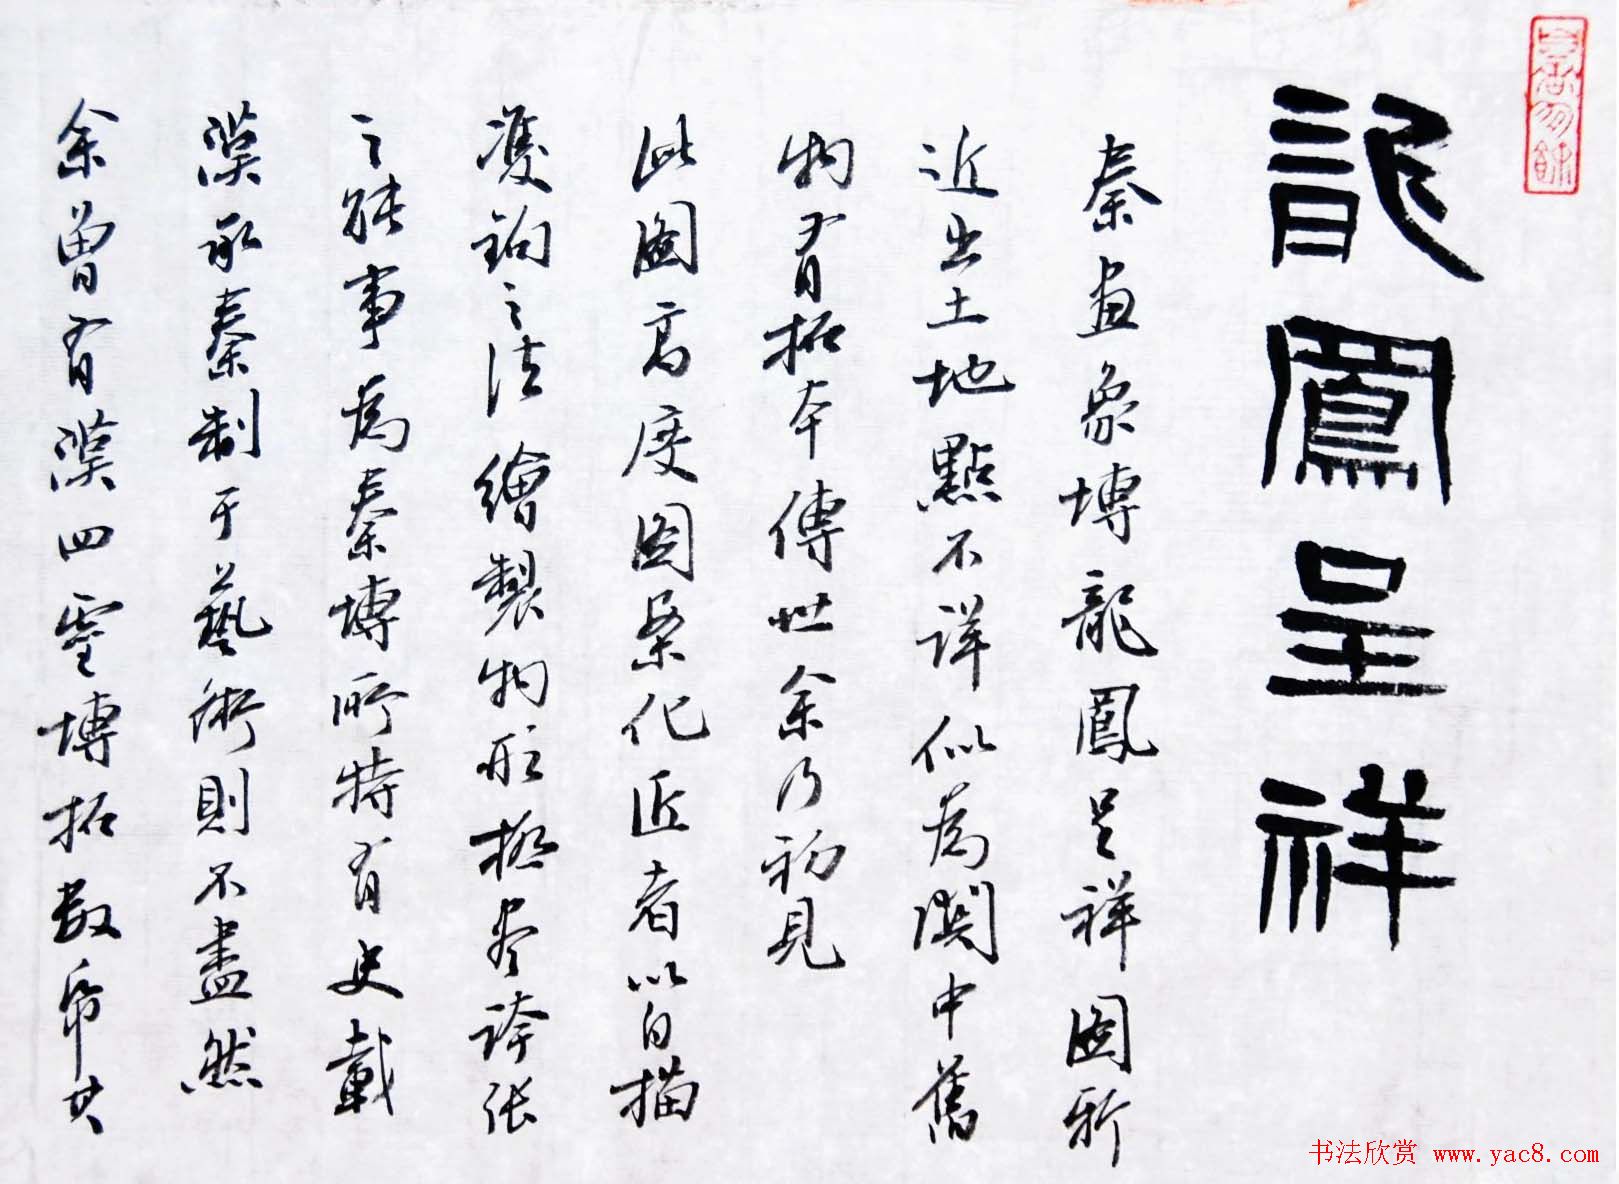 龍鳳呈祥
秦畫象塼龍鳳呈祥圖新
近出土地點不詳似為關中舊
物有拓本傳世余乃初見
此圖高度圖案化匠者以白描
雙鉤之法繪製物形極盡誇張
之能事為秦塼所特有史載
漢承秦制于藝術則不盡然
余曾有漢四靈塼拓數帋其
书法欣赏 www.yac8.com